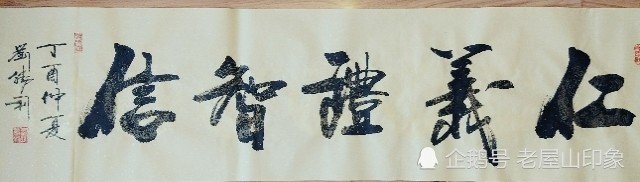 仁義禮智信
丁酉仲夏
劉勝利
企鹅号 老屋山印象